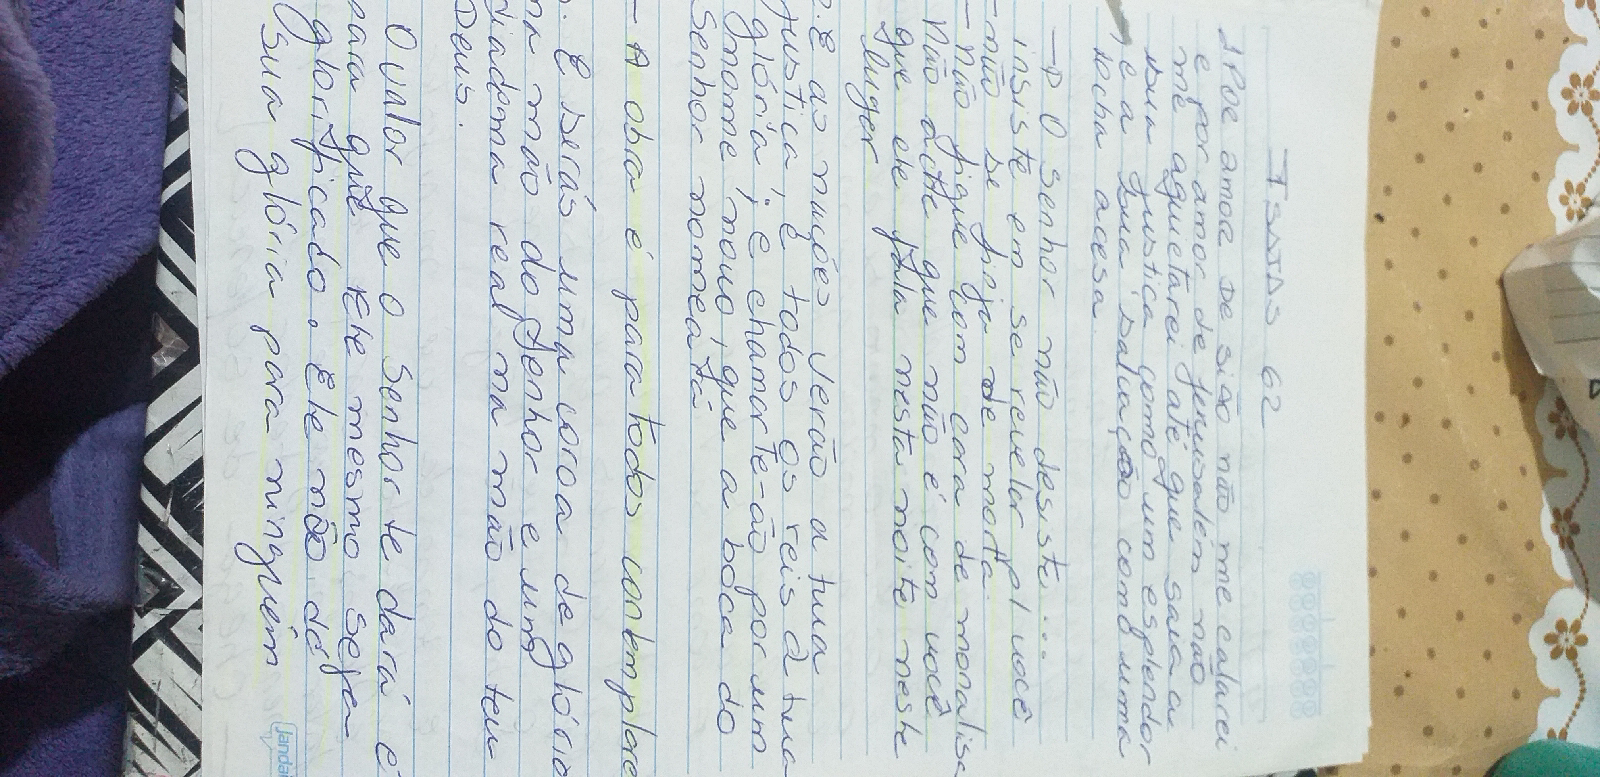 ISAIAS 62
1 Por amor de sião não me calarei
e por amor de jerusalem não
me aquietarei até que saia a
sua justica como um esplendor
e a sua salvação como uma
tocha acesa.
→ O senhor não desiste....
insiste em se revelar p/ você
- não se finja de morta.
- Não fique com cara de monalisa
Não ache que não é com você
que ele fala nesta noite neste
lugar
2. E as nações verão a tua
justica, e todos os reis a tua
glória; e chamar-te-ão por um
nome novo, que a boca do
Senhor nomeará
- A obra é para todos contemplarem
3. E serás uma coroa de glória
na mão do senhor e um
diadema real na mão do teu
Deus.
O valor que o senhor te dará é
para que Ele mesmo seja
glorificado. Ele não dá
Sua glória para ninguém
jandaia